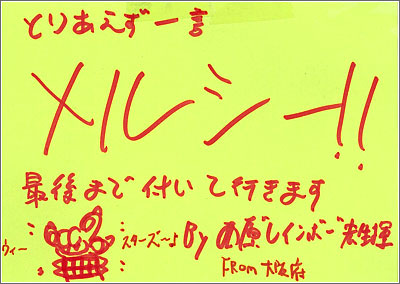 とりあえず一言
メルシー!!
最後まで付いて行きます
ウィー
スターズ〜♪
By 原レインボー
FROM 大阪府